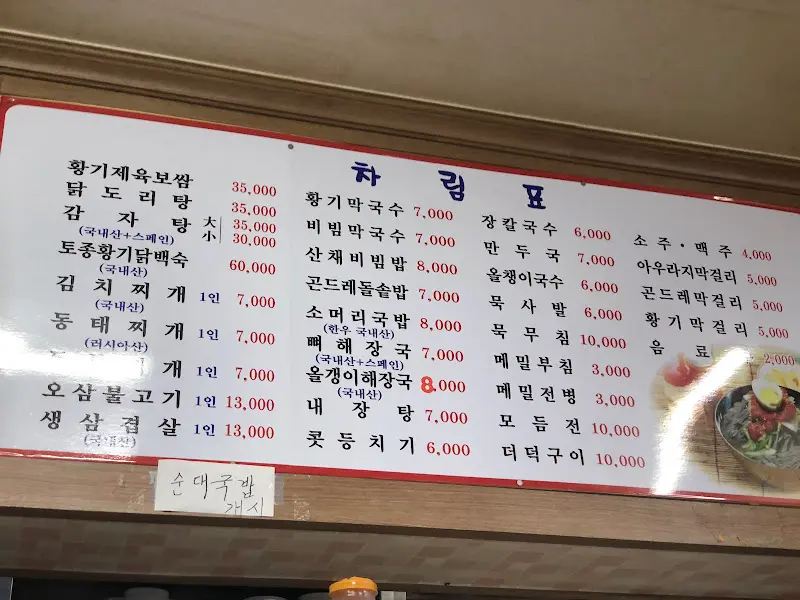 차림표
황기제육보쌈 35,000
닭도리탕 35,000
감자탕 大 35,000
(국내산+스페인) 小 30,000
토종황기닭백숙 60,000
(국내산)
김치찌개 1인 7,000
(국내산)
동태찌개 1인 7,000
(러시아산)
개 1인 7,000
오삼불고기 1인 13,000
생삼겹살 1인 13,000
(국내산)
황기막국수 7,000
비빔막국수 7,000
산채비빔밥 8,000
곤드레돌솥밥 7,000
소머리국밥 8,000
(한우 국내산)
뼈해장국 7,000
(국내산+스페인)
올갱이해장국 8,000
(국내산)
내장탕 7,000
콧등치기 6,000
장칼국수 6,000
만두국 7,000
올챙이국수 6,000
묵사발 6,000
묵무침 10,000
메밀부침 3,000
메밀전병 3,000
모듬전 10,000
더덕구이 10,000
소주·맥주 4,000
아우라지막걸리 5,000
곤드레막걸리 5,000
황기막걸리 5,000
음료 2,000
순대국밥
개시